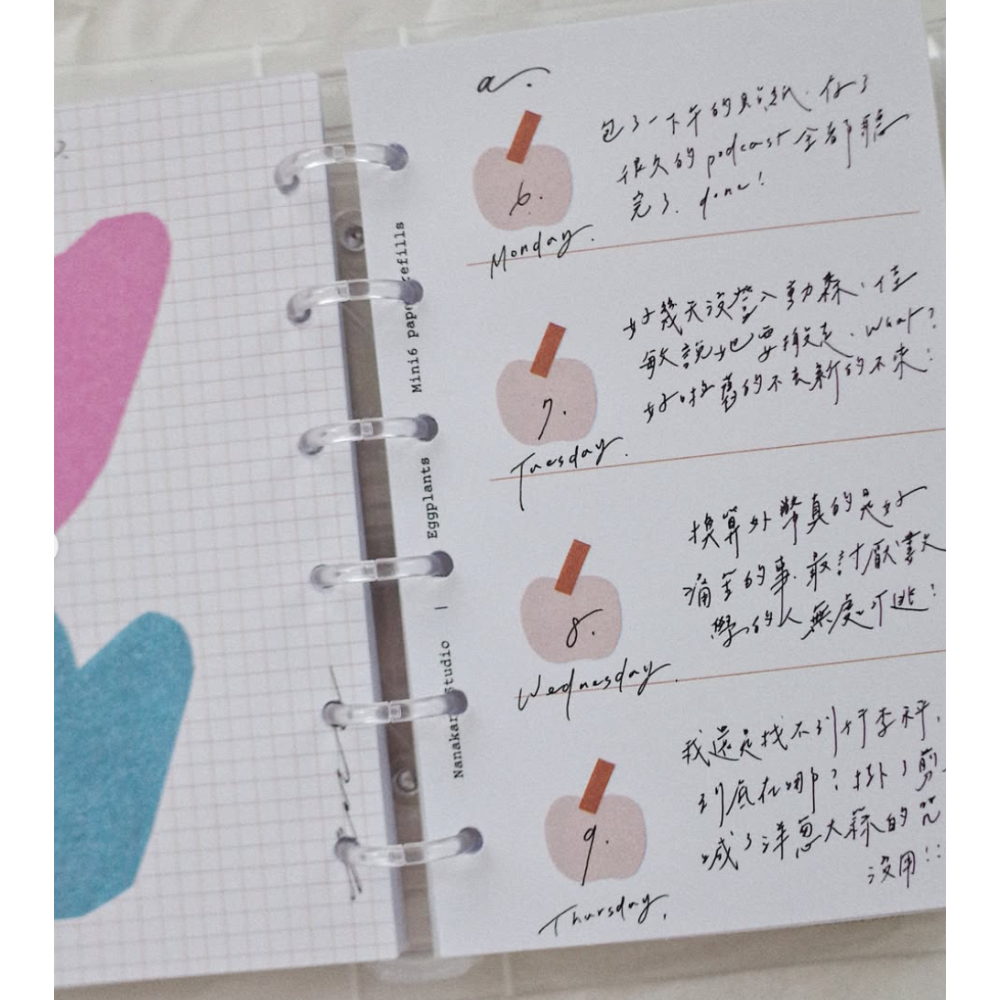 a.
6.
Monday.
包了一下午的貼紙.存了
很久的 podcast 全部聽
完了. done!
7.
Tuesday.
好幾天沒登入動森.佳
敏說她要搬走. What?
好啦舊的不去新的不來:
8.
Wednesday.
換算外幣真的是好
痛苦的事.最討厭數
學的人無處可逃:
9.
Thursday.
我還是找不到行李秤.
到底在哪?掛了剪
喊了洋蔥大蒜的咒
沒用!:
Nanakara studio | Eggplants Mini6 paper refills